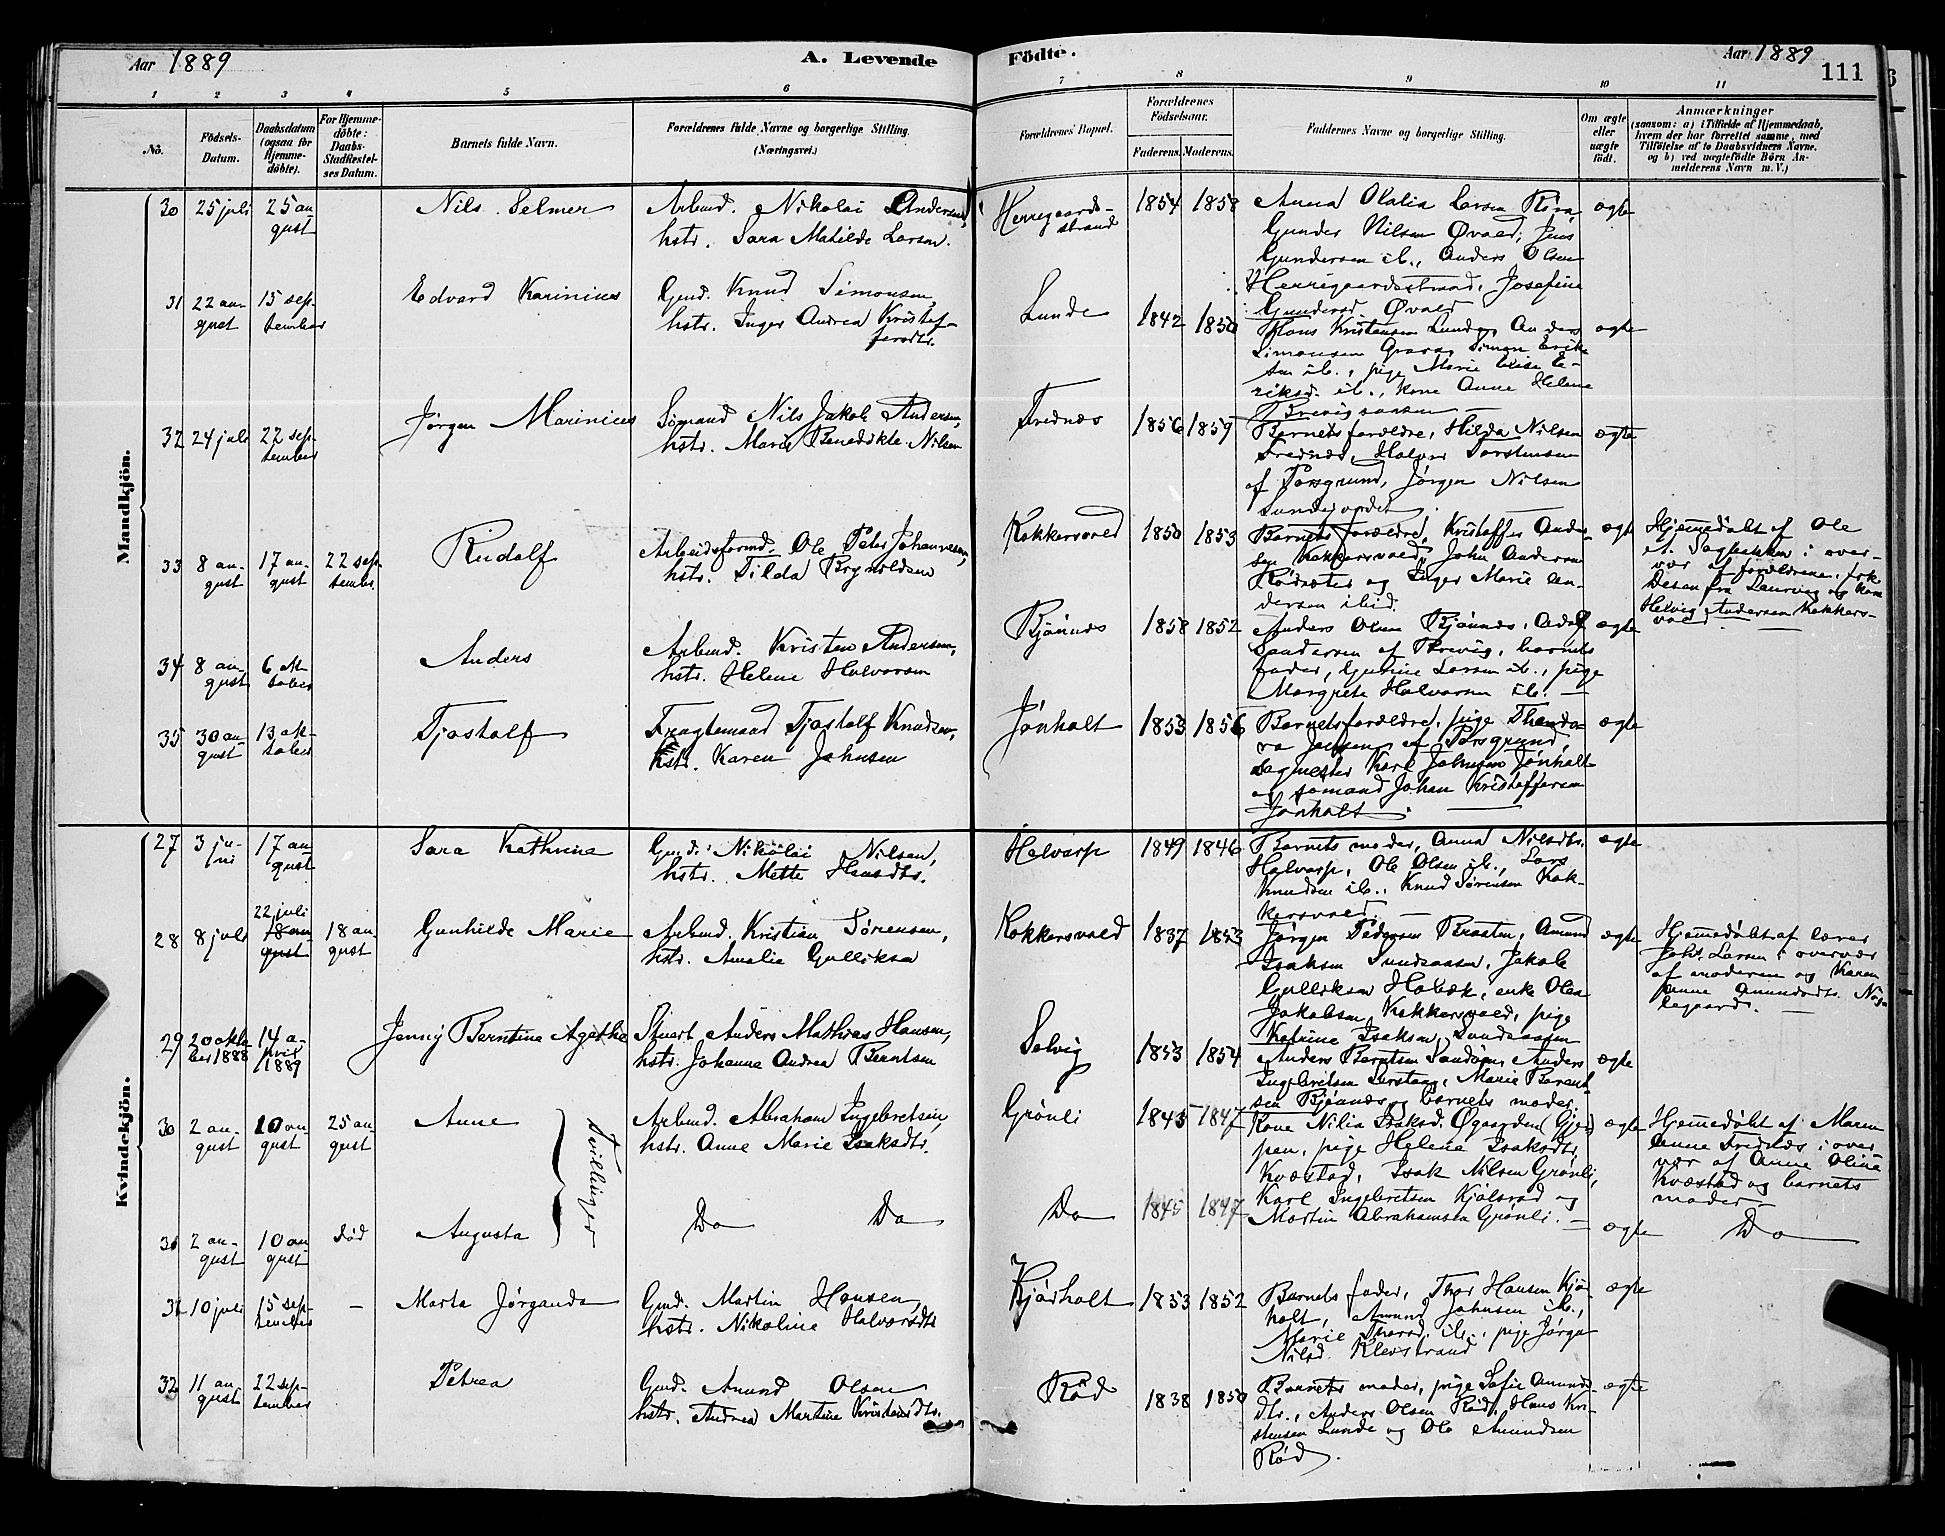 Aar 1889
A. Levende
Födte.
Aar 1889
111
1 2 3 4 5 6 7 8 9 10 11
No.
Födsels-Datum.
Daabsdatum (ogsaa for Hjemme-döbte).
For Hjemme-döbte: Daabs-Stadfæstel-ses Datum.
Barnets fulde Navn.
Forældrenes fulde Navne og borgerlige Stilling. (Næringsvei.)
Forældrenes Bopæl.
Forældrenes Födselsaar.
Faderens. Moderens.
Faddernes Navne og borgerlige Stilling.
Om ægte eller uægte födt.
Anmærkninger
(saasom: a) i Tilfælde af Hjemmedaab,
hvem der har forrettet samme, med
Tilföielse af to Daabsvidners Navne.
og b) ved uægtefödte Börn An-
melderens Navn m. V.)
Mandkjön.
30 25 juli 25 au-
gust
Nils Selmer
Arbmd. Nikolai Andersen,
hstr. Sara Matilde Larsen.
Herregaards-
strand
1854 1858
Anna Olalia Larsen
Gunder Nilsen Øvald, Jens
Gundersen ib., Anders Olsen
Herregaardsstrand, Josefine
Gundersd. Øvald
ægte
31 22 au-
gust
15 sep-
tember
Edvard Karinius
Gmd. Knud Simonsen,
hstr. Inger Andrea Kristof-
fersdtr.
Lunde
1842 1850
Hans Kristensen Lunde, Anders
Simonsen Grava, Simon Erik-
sen ib., pige Marie Elise E-
riksd. ib., kone Anne Helene
Brevigsaasen
ægte
32 24 juli 22 sep-
tember
Jørgen Marinius
Sømand Nils Jakob Andersen,
hstr. Marie Benedikte Nilsen
Frednes
1856 1859
Barnets forældre, Hilda Nilsen
Frednes, Halvor Torstensen
af Porsgrund, Jørgen Nilsen
Lundejordet
ægte
33 8 au-
gust
17 au-
gust
22 sep-
tember
Rudolf
Arbeidsformd. Ole Peter Johannesen,
hstr. Tilda Brynildsen
Kokkersvold
1850 1853
Barnets forældre, Kristoffer Ander-
sen Kokkersvold, John Andersen
Rødsæter og Inger Marie An-
dersen ibid.
ægte
Hjemmedøbt af Ole
A. Sagbakken i over-
vær af forældrene, frk
Desen fra Laurvig og kone
Helvig Andersen Kokkers-
vold
34 8 au-
gust
6 ok-
tober
Anders
Arbmd. Kristen Andersen,
hstr. Helene Halvorsen
Bjønnes
1858 1852
Anders Olsen Bjønnes, Adolf
Gundersen af Brevig, barnets
fader, Gunine Larsen ib., pige
Margrete Halvorsen ib.
ægte
35 30 au-
gust
13 ok-
tober
Tjostolf
Fragtemand Tjostolf Knudsen,
hstr. Karen Johnsen
Jønholt
1853 1856
Barnets forældre, pige Theodo-
ra Jensen af Porsgrund,
sagmester Karl Johnsen Jønholt
og sømand Johan Kristoffersen
Jønholt.
ægte
Kvindekjön.
27 3 ju-
ni
17 au-
gust
Sara Kathrine
Gmd. Nikolai Nilsen,
hstr. Mette Hansdtr.
Helvarp
1849 1846
Barnets moder, Anna Nilsdtr.
Halvarp, Ole Olsen ib., Lars
Knudsen ib., Knud Sørensen Kok-
kersvold.
ægte
28 8 juli
22 juli
18 au-
gust
18 au-
gust
Gunhilde Marie
Arbmd. Kristian Sørensen,
hstr. Amalie Gulliksen
Kokkersvold
1837 1853
Jørgen Pedersen Braaten, Amund
Isaksen Sundsaasen, Jakob
Gulliksen Holbæk, enke Olea
Jakobsen Kokkersvold, pige
Katrine Isaksen Sundsaasen
ægte
Hjemmedøbt af lærer
Johs. Larsen i overvær
af moderen og Karen
Amundsdtr. Nøg-
legaard.
29 20 okto-
ber 1888
14 a-
pril
1889
Jenny Berntine Agathe
Stuert Anders Mathias Hansen,
hstr. Johanne Andrea Berntsen
Solvig
1853 1854
Anders Berntsen Sandøen, Anders
Ingebretsen, Marie Bernt-
sen Bjønnes og barnets moder.
ægte
30 2 au-
gust
10 au-
gust
25 au-
gust
Anne
Tvillinger
Arbmd. Abraham Ingebretsen,
hstr. Anne Marie Isaksdtr.
Grønli
1845 1847
Kone Nilia Isaksd. Øgaarden (Gjer-
pen, pige Helene Isaksdtr.
Kvæstad, Isak Nilsen Grønli,
Karl Ingebretsen Kjølsrød og
Martin Abrahamsen Grønli.
ægte
Hjemmedøbt af Maren
Anne Frednes i over-
vær af Anne Oline
Kvæstad og barnets
moder
31 2 au-
gust
10 au-
gust
død
Augusta
Do Do
Do
1845 1847
ægte
Do
31 10 juli 15 sep-
tember
–
Marta Jørganda
Gmd. Martin Hansen,
hstr. Nikoline Halvorsdtr.
Kjørholt
1853 1852
Barnets fader, Thor Hansen Kjør-
holt, Amund Johnsen ib.,
Marie Thorsd. ib., pige Jørga
Nilsd. Klevstrand
ægte
32 11 au-
gust
22 sep-
tember
Petrea
Gmd. Amund Olsen
hstr. Andrea Martine Kristensdtr.
Rød
1838 1850
Barnets moder, pige Sofie Amunds-
dtr., Anders Olsen Rød, Hans Kri-
stensen Lunde og Ole Amundsen
Rød.
ægte